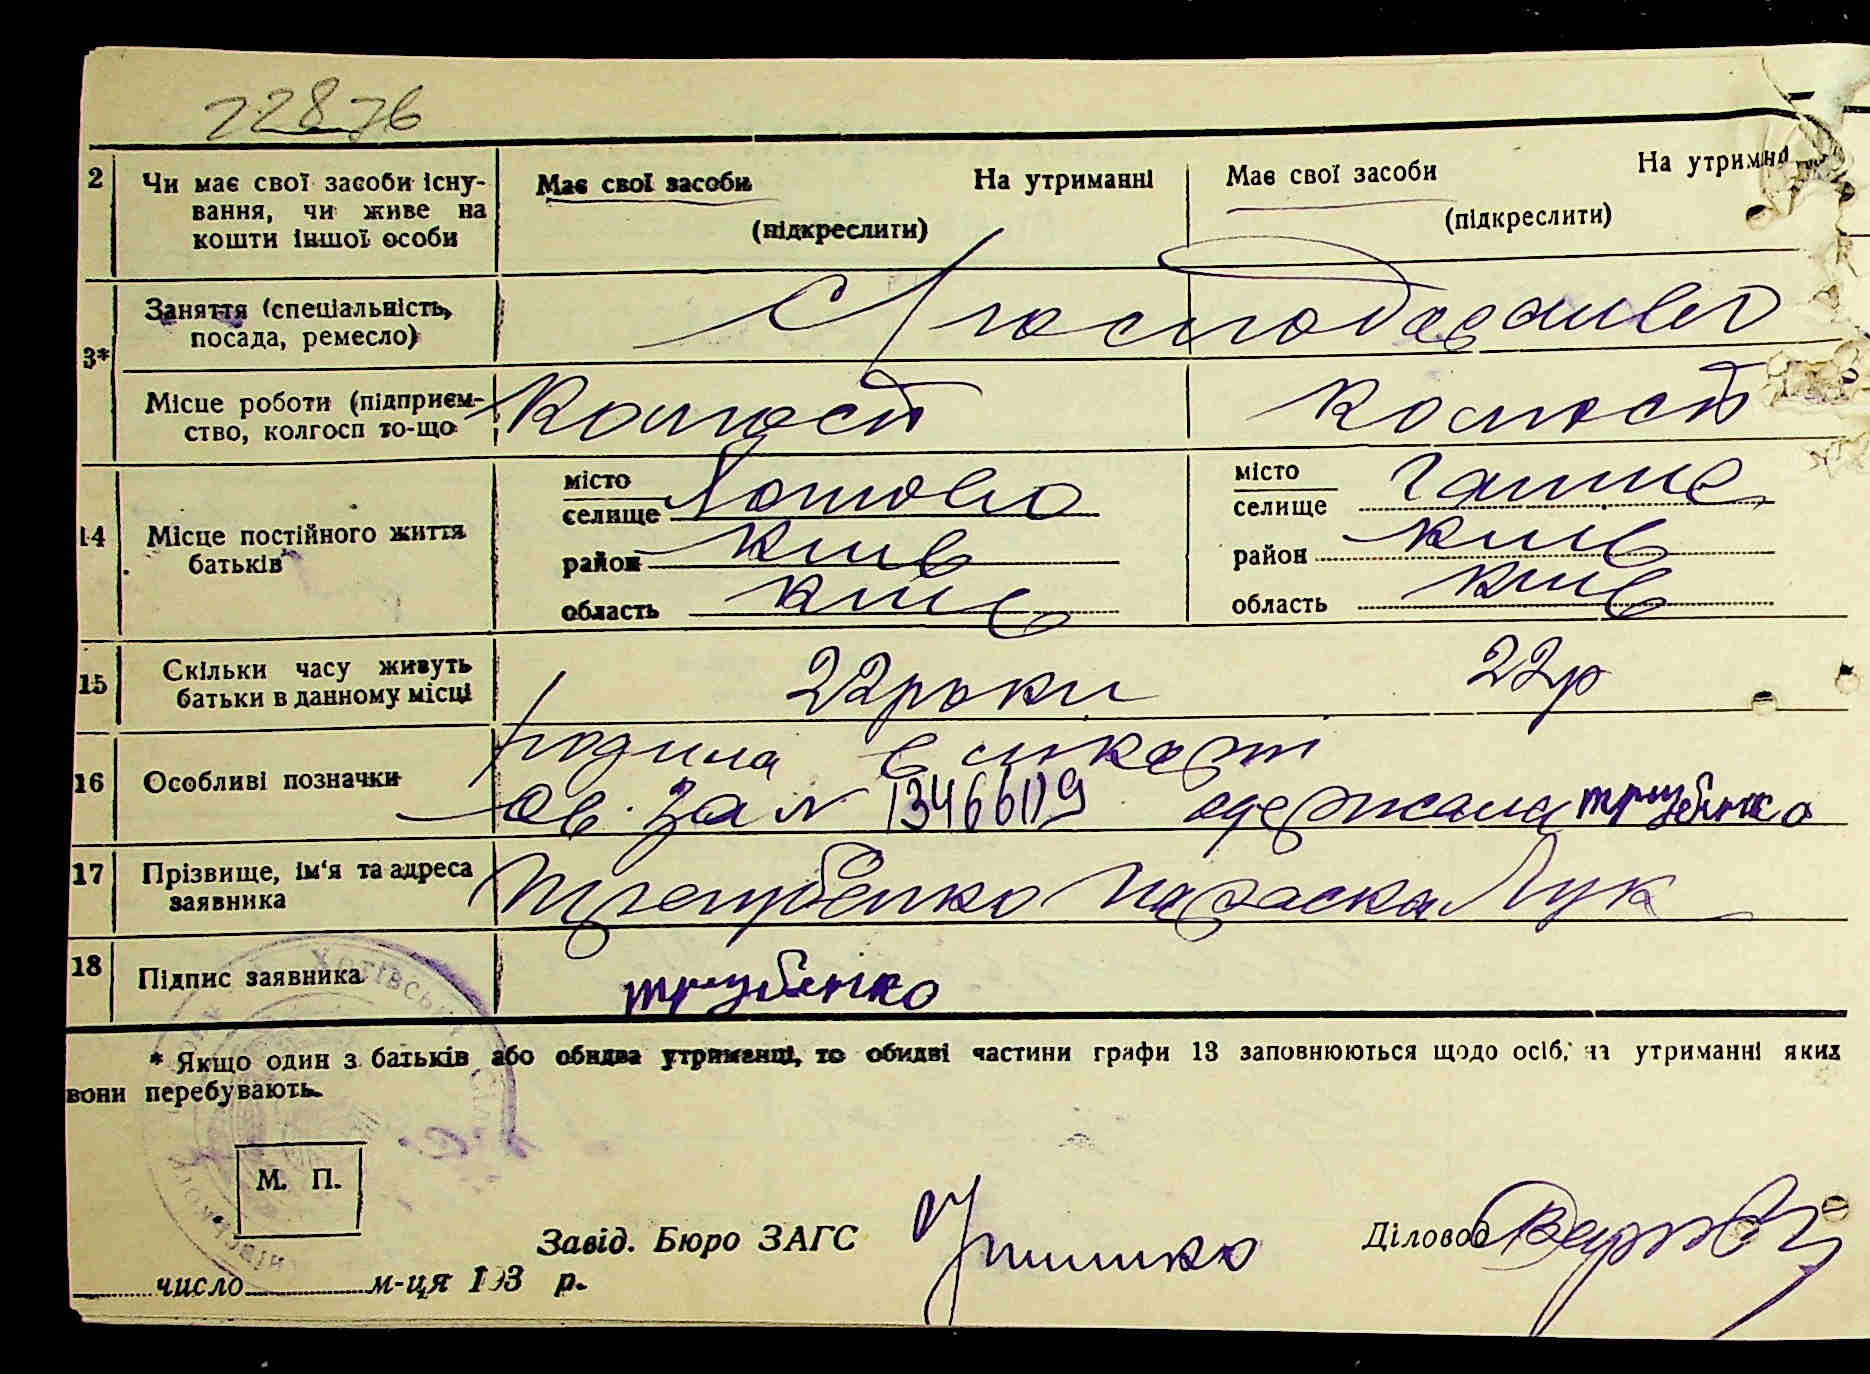 22876
2 Чи має свої засоби існу- Має свої засоби На утриманні Має свої засоби На утриман
вання, чи живе на (підкреслити) (підкреслити)
кошти іншої особи
Заняття (спеціальність, С/господарство
посада, ремесло)
3*
Місце роботи (підприєм- Колгосп колгосп
ство, колгосп то-що
місто Хотово місто
селище селище
14 Місце постійного життя район Київ район Київ
батьків
область Київ область Київ
15 Скільки часу живуть 22 роки 22 р
батьки в данному місці
16 Особливі позначки родила в
св. за № одержала Трубенко
17 Прізвище, ім'я та адреса Трубенко Параска Лук
заявника
18 Підпис заявника Трубенко
* Якщо один з батьків або обидва утриманці, то обидві частини графи 13 заповнюються щодо осіб, на утриманні яких
вони перебувають.
М. П.
Завід. Бюро ЗАГС Діловод
число м-ця 193 р.
ХОТІВСЬК СІЛ